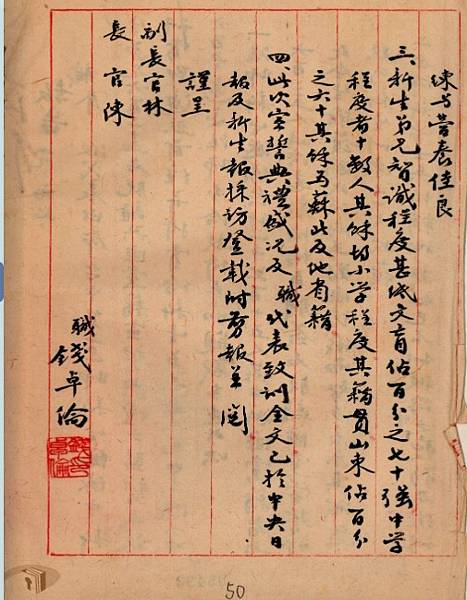 練与營養佳良
三、新生弟兄智識程度甚低文盲佔百分之七十強中学
程度者十數人其餘均小学程度其籍貫山東佔百分
之六十其餘為蘇北及他省籍
四、此次宣誓典禮盛况及職代表致訓全文已於中央日
報及新生報採訪登載附剪報並閱
謹呈
副長官林
長官陳
職錢卓倫
50